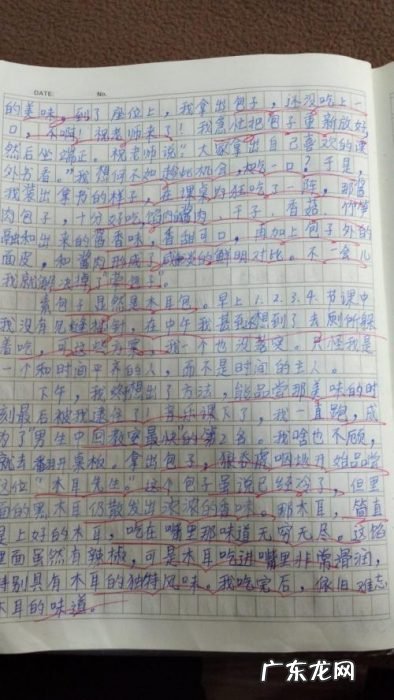 DATE: No.
的美味。到了座位上，我拿出包子，还没吃上一
口，不啊！祝老师来了！我急忙把包子重新放好，
然后坐端正。祝老师说："大家拿出自己喜欢的课
外书看。"我想何不如趁此机会，吃一口？于是，
我装出拿书的样子，在课桌内狂吃了一阵，那酱
肉包子，十分好吃，馅内酱肉、干子、香菇、竹笋
融和出来的酱香味，香甜可口，再加上包子外的
面皮，和酱肉形成了的鲜明对比。不一会儿
我就解决掉了"荤包子"。
素包子虽然是木耳包。早上1.2.3.4.节课中
我没有见缝插针，在中午我甚至想到了去厕所躲
着吃，可这些方案，我一个也没落实。只怪我是
一个和时间平齐的人，而不是时间的主人。
下午，我终想出了方法，能品尝那美味的时
刻最后被我逮住了！音乐课下了，我一直跑，成
为了"男生中回教室最快"的第2名。我啥也不顾，
就去翻开桌板。拿出包子，狼吞虎咽地开始品尝
这位"木耳先生"。这个包子虽说已经冷了，但里
面的黑木耳仍散发出浓浓的香味。那木耳，简直
是上好的木耳，吃在嘴里那味道无穷无尽。这馅
里面虽然有辣椒，可是木耳吃进嘴里非常滑润，
特别具有木耳的独特风味。我吃完后，依旧难忘
木耳的味道。
广东龙网